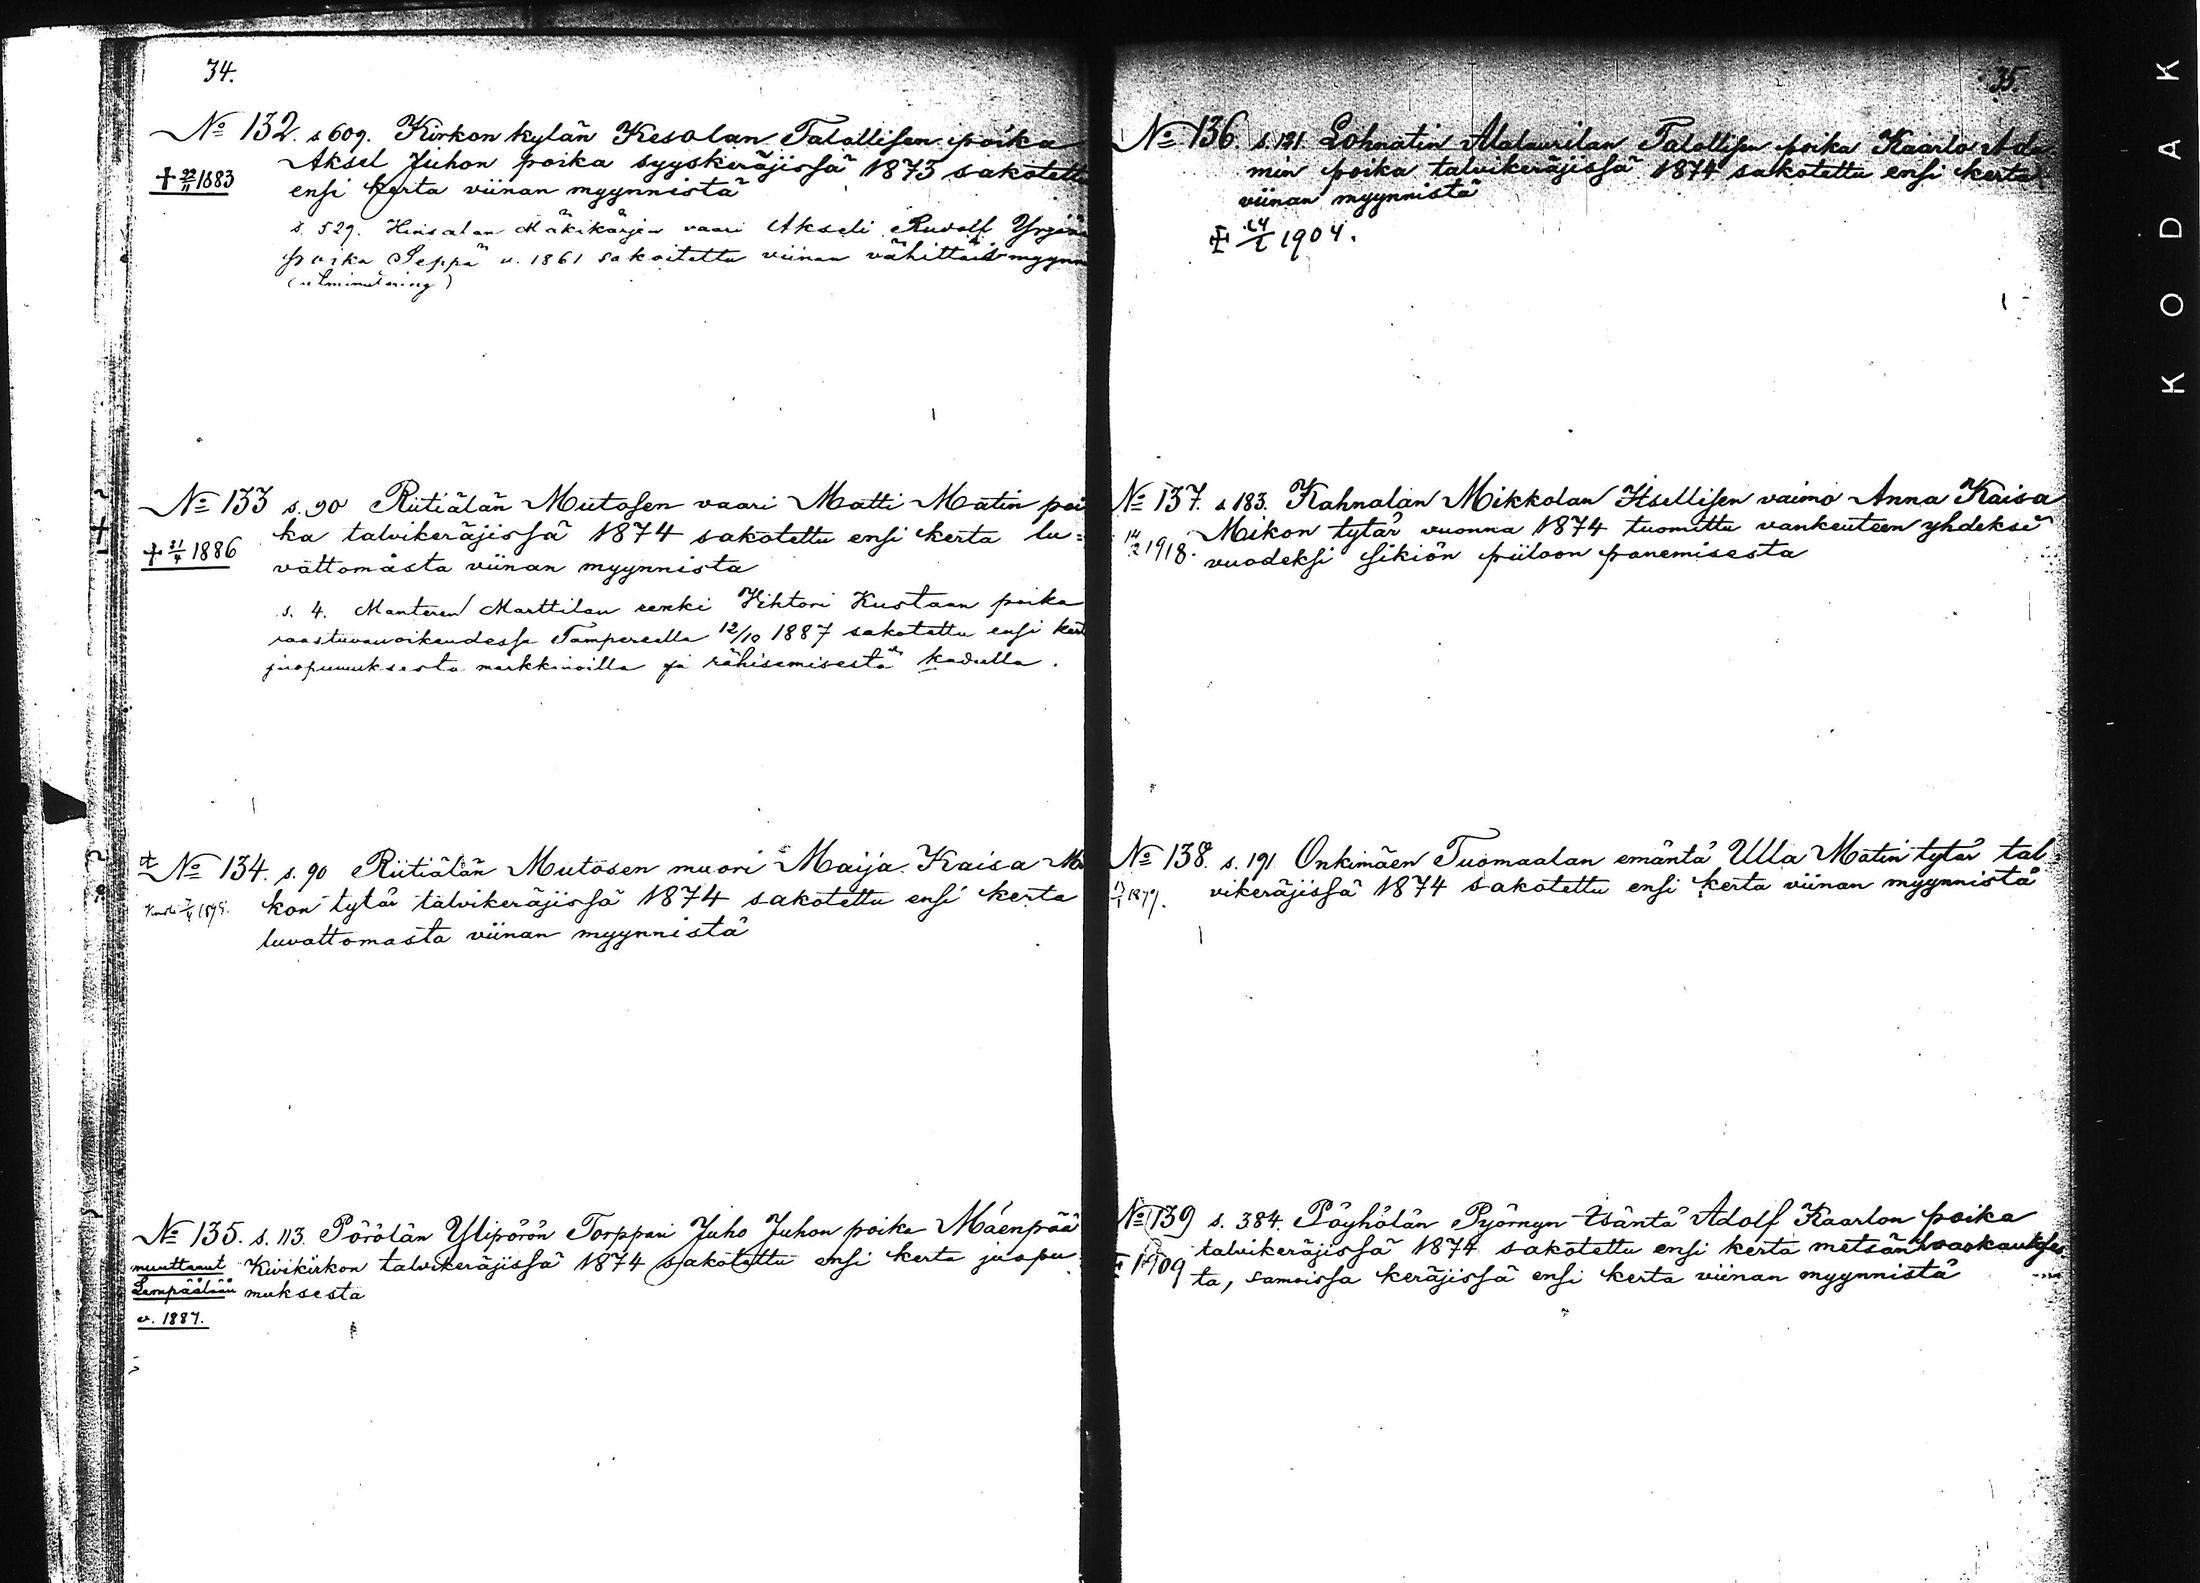 34.
No 132. s 609. Kirkon kylän Kesolan Talollisen poika
Aksel Juhon poika syyskeräjissä 1873 sakotettu
+ 22/11 1883
ensi kerta viinan myynnistä
s. 529. Hinsalan Mäkikärjen vaari Akseli Rudolf Yrjön
poika Seppä v. 1861 sakoitettu viinan vähittäis myynn
(utminutering)
No 133 s. 90 Riitiälän Mutosen vaari Matti Matin poi
ka talvikeräjissä 1874 sakotettu ensi kerta lu=
+ 21/4 1886
vattomasta viinan myynnista
s. 4. Manteren Marttilan renki Vihtori Kustaan poika
raastuvanoikeudessa Tampereella 12/10 1887 sakotettu ensi kert
juopumuksesta markkinoilla ja rähisemisestä kadulla.
No 134. s. 90 Riitiälän Mutosen muori Maija Kaisa Mi
kon tytär talvikeräjissä 1874 sakotettu ensi kerta
luvattomasta viinan myynnistä
No 135. s. 113. Pörölän Ylipörön Torppari Juho Juhon poika Mäenpää
muuttanut Kivikirkon talvikeräjissä 1874 sakotettu ensi kerta juopu
Lempäälään muksesta
v. 1887.
35.
No 136. s. 131. Lohnatin Alalaurilan Talollisen poika Kaarlo Ada
min poika talvikeräjissä 1874 sakotettu ensi kerta
viinan myynnistä
1904.
No 137. s 183. Kahnalan Mikkolan Itsellisen vaimo Anna Kaisa
Mikon tytär vuonna 1874 tuomittu vankeuteen yhdeksi
14/2 1918. vuodeksi sikiön piiloon panemisesta
No 138. s. 191. Onkimäen Tuomaalan emäntä Ulla Matin tytär tal
1879. vikeräjissä 1874 sakotettu ensi kerta viinan myynnistä
No 139 s. 384. Pöyhölän Pyörnyn Isäntä Adolf Kaarlon poika
talvikeräjissä 1874 sakotettu ensi kerta metsänhaaskaukses
1909 ta, samoissa keräjissä ensi kerta viinan myynnistä
KODAK